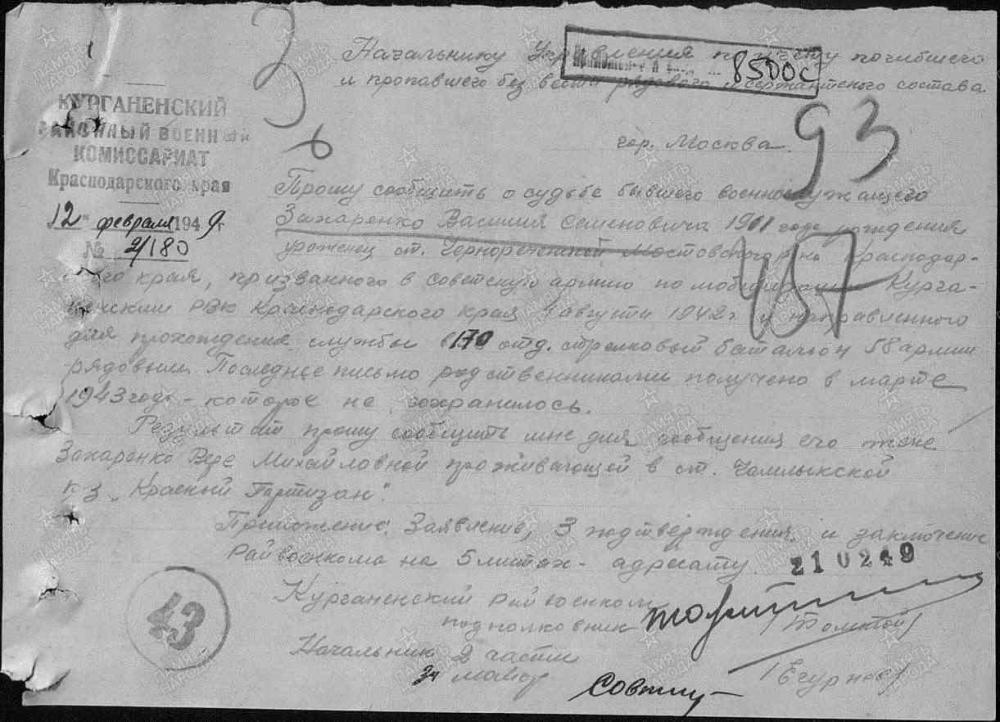 Начальнику Управления по учету погибшего
и пропавшего без вести рядового и сержантского состава
8500с
КУРГАНЕНСКИЙ
РАЙОННЫЙ ВОЕННЫЙ
КОМИССАРИАТ
Краснодарского края
12 февраля 1949г
№ 2/180
гор. Москва.
93
Прошу сообщить о судьбе бывшего военнослужащего
Захаренко Василия Семеновича 1901 года рождения
уроженец ст. Мостовского р-на Краснодар-
ского края, призванного в советскую армию по мобилизации Курга-
ненским РВК Краснодарского края 1 августа 1942г и направленного
для прохождения службы в 170 отд. стрелковый батальон 58 армии
рядовым. Последнее письмо родственниками получено в марте
1943 года - которое не сохранилось.
Результат прошу сообщить мне для сообщения его жене
Захаренко Вере Михайловной проживающей в ст. Чамлыкской
к-з „Красный Партизан".
Приложение: Заявление, 3 подтверждения и заключение
Райвоенкома на 5 листах - адресату.
210249
43
Курганенский райвоенком
подполковник /Толстой/
Начальник 2 части
майор